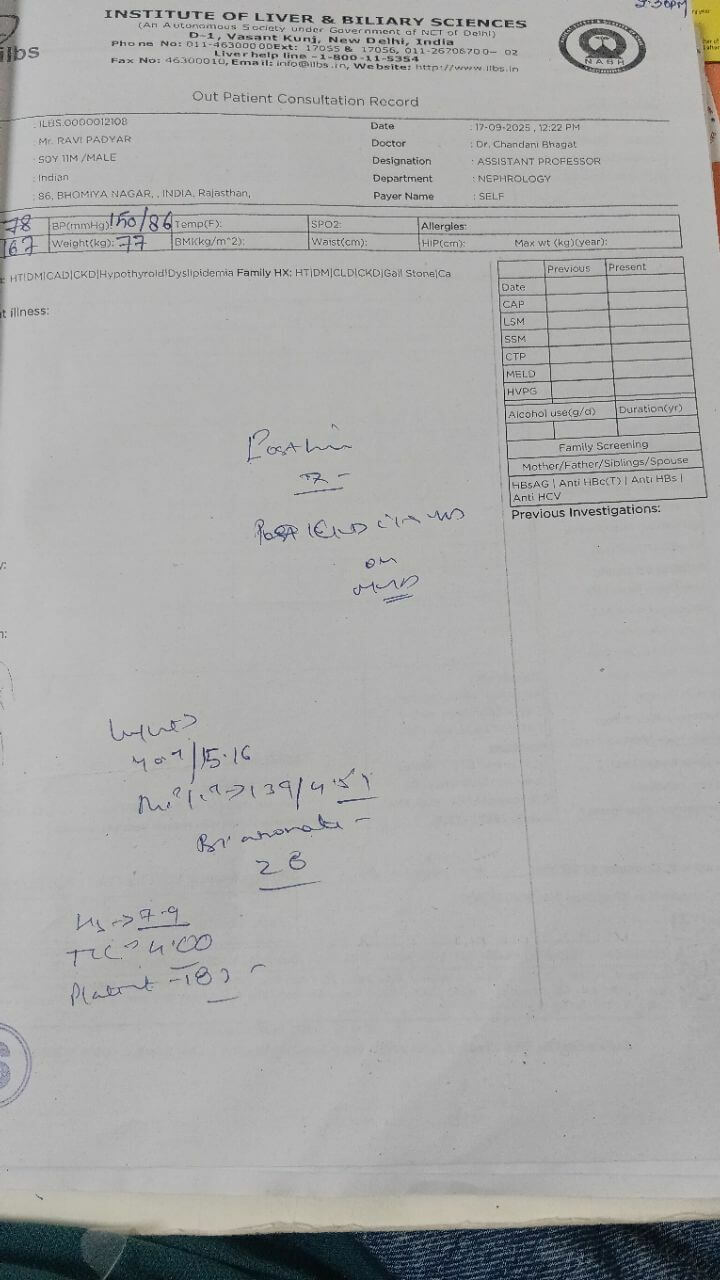 3:30PM
INSTITUTE OF LIVER & BILIARY SCIENCES
(An Autonomous Society under Government of NCT of Delhi)
D-1, Vasant Kunj, New Delhi, India
Phone No: 011-46300000Ext: 17055 & 17056, 011-26706700- 02
Liver help line -1-800-11-5354
Fax No: 46300010, Email: info@ilbs.in, Website: http://www.ilbs.in
ilbs
NABH
Out Patient Consultation Record
: ILBS.0000012108 Date : 17-09-2025 , 12:22 PM
: Mr. RAVI PADYAR Doctor : Dr. Chandani Bhagat
: 50Y 11M /MALE Designation : ASSISTANT PROFESSOR
: Indian Department : NEPHROLOGY
: 86, BHOMIYA NAGAR, , INDIA, Rajasthan, Payer Name : SELF
78 BP(mmHg): 150/86 Temp(F): SPO2: Allergies:
167 Weight(kg): 77 BMI(kg/m^2): Waist(cm): HIP(cm): Max wt (kg)(year):
: HT|DM|CAD|CKD|Hypothyroid|Dyslipidemia Family HX: HT|DM|CLD|CKD|Gall Stone|Ca
Previous Present
Date
CAP
LSM
SSM
CTP
MELD
HVPG
Alcohol use(g/d) Duration(yr)
Family Screening
Mother/Father/Siblings/Spouse
HBsAG | Anti HBc(T) | Anti HBs |
Anti HCV
Previous Investigations:
t illness:
on
MHD
/15.16
139/4.51
28
Hb -> 7.9
TLC -> 4.00